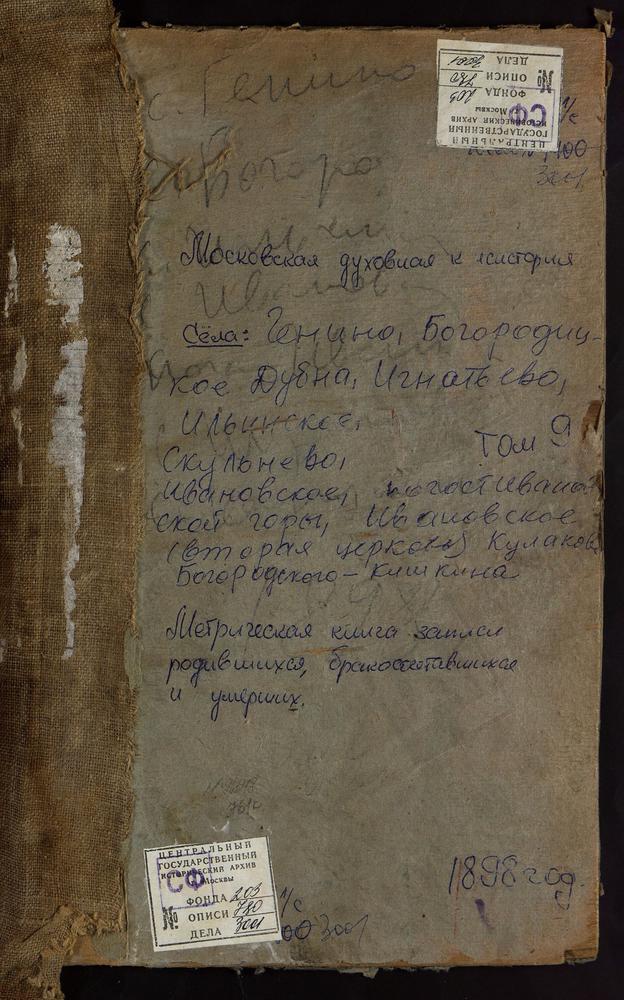 с. Генино
ЦЕНТРАЛЬНЫЙ
ГОСУДАРСТВЕННЫЙ
ИСТОРИЧЕСКИЙ АРХИВ
г. Москвы
СФ
ФОНДА 203
№ ОПИСИ 780
ДЕЛА 3001
3001
Московская духовная консистория
Сёла: Генино, Богородиц-
кое Дубна, Игнатьево,
Ильинское,
Том 9
Скульнево,
Ивановское, погост Иванов-
ской горы, Ивановское
(вторая церковь) Кулаков
Богородского - Кишкина
Метрическая книга записи
родившихся, бракосочетавшихся
и умерших.
1898 год.
ЦЕНТРАЛЬНЫЙ
ГОСУДАРСТВЕННЫЙ
ИСТОРИЧЕСКИЙ АРХИВ
г. Москвы
СФ
ФОНДА 203
№ ОПИСИ 780
ДЕЛА 3001
3001